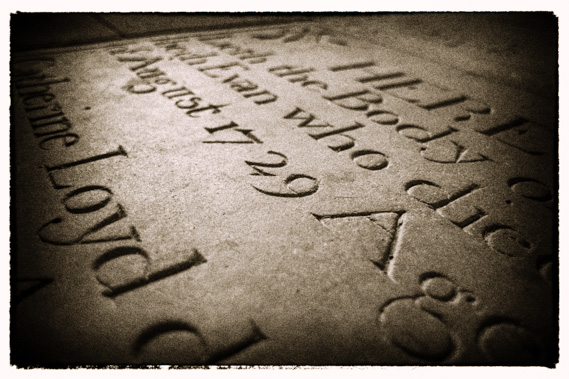 HERE
eth the Body o
eth Evan who died
August 1729 Ag
Catherine Loyd d